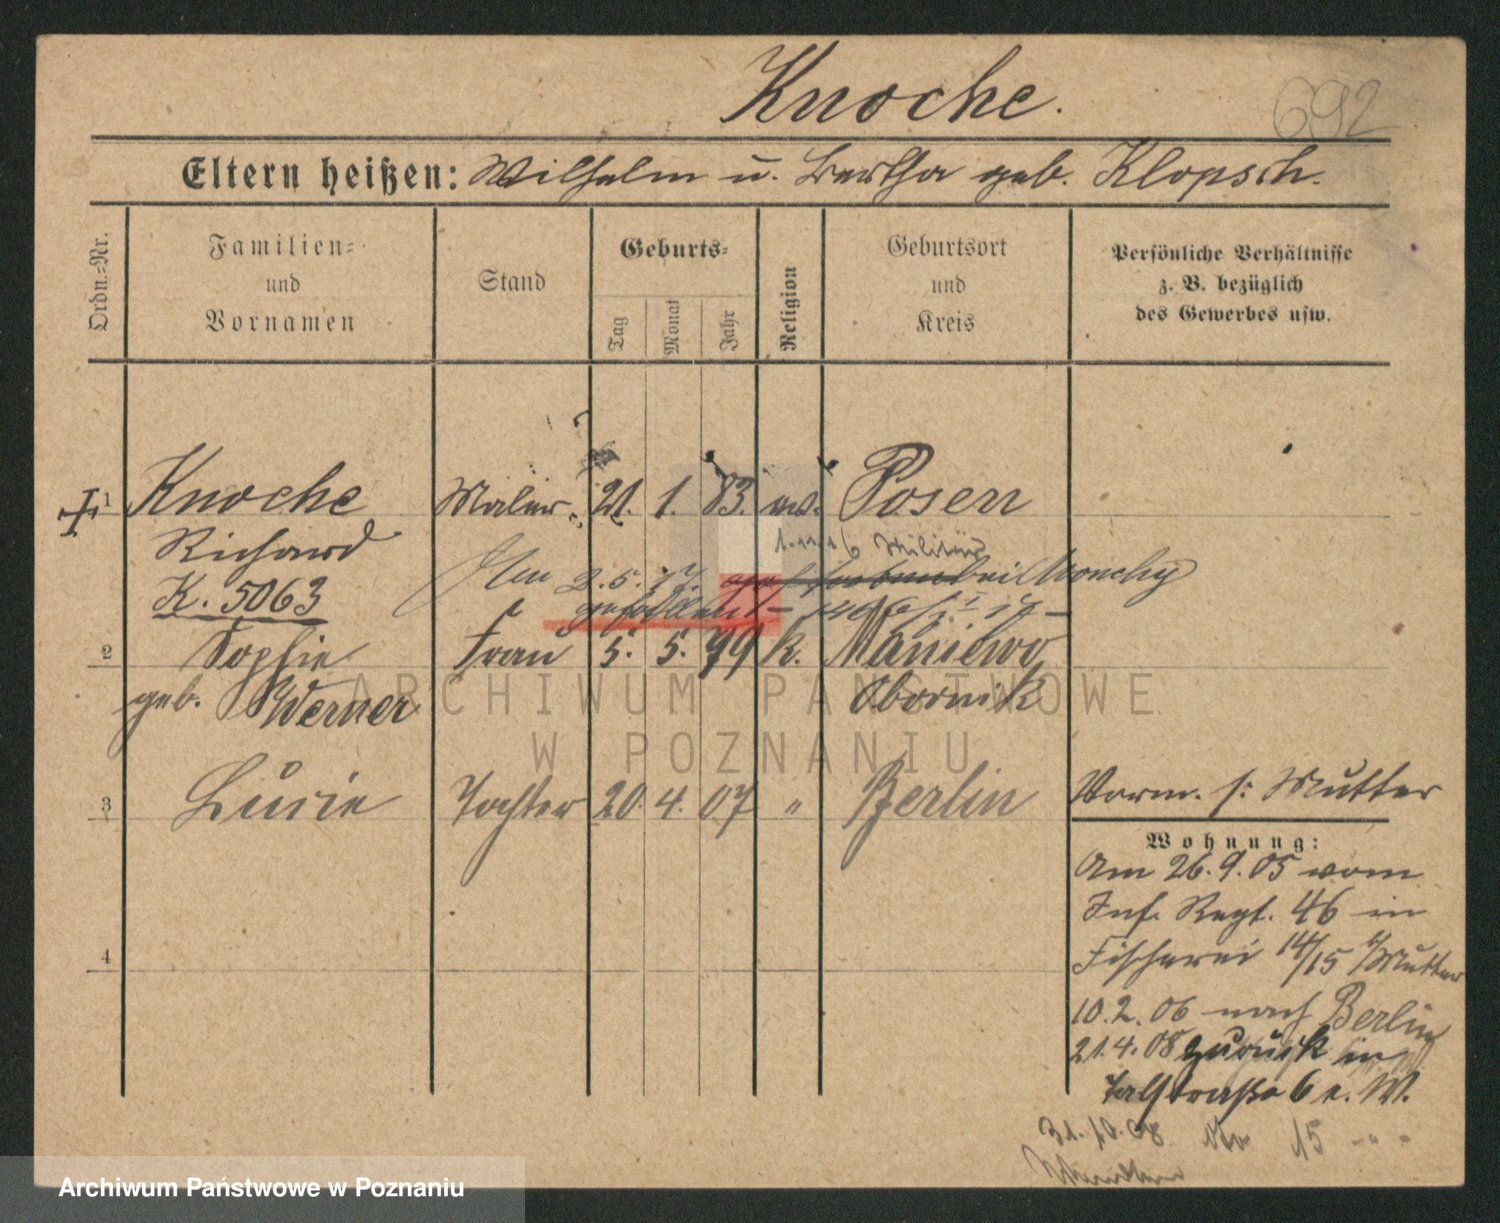 Knoche.
692
Eltern heißen: Wilhelm u. Bertha geb. Klopsch.
Ordn.-Nr.
Familien- und Vornamen
Stand
Geburts-
Tag
Monat
Jahr
Religion
Geburtsort und Kreis
Persönliche Verhältnisse z. B. bezüglich des Gewerbes usw.
1 Knoche Maler 21. 1. 83. ev. Posen
Richard
1.11.16 Militär
Am 2.5.17. gestorben bei Monchy
K. 5063
gefallen
2 Sophie Frau 5. 5. 79 k. Maniewo
geb. Werner Obornik
3 Lucie Tochter 20. 4. 07 " Berlin
Vorm. s: Mutter
Wohnung:
Am 26.9.05 vom
Inf. Regt. 46 in
Fischerei 14/15 b/Mutter
10.2.06 nach Berlin
21.4.08 zurück in
Talstraße 6 e. W.
4
31.10.08 15 - " -
ARCHIWUM PAŃSTWOWE
W POZNANIU
Archiwum Państwowe w Poznaniu